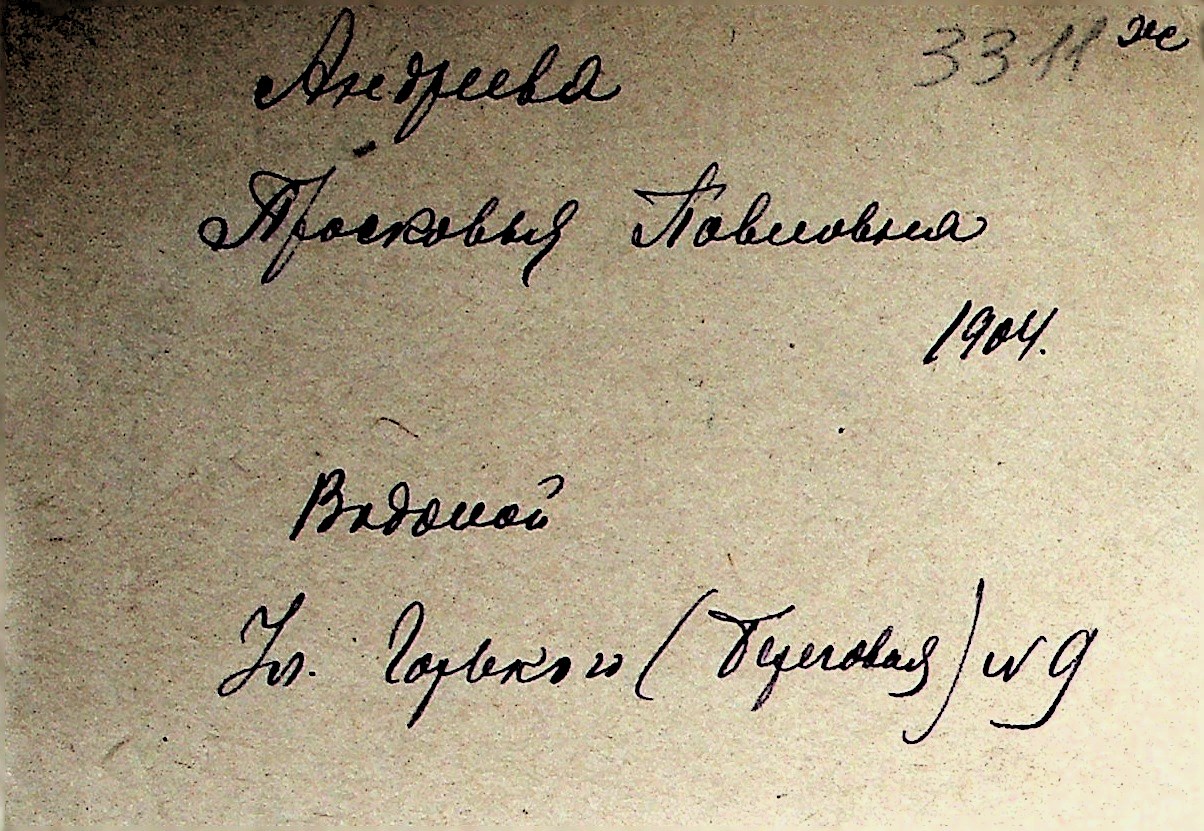 3311 ж
Андреева
Прасковья Павловна
1904.
Водопой
Ул. Горького (Береговая) № 9